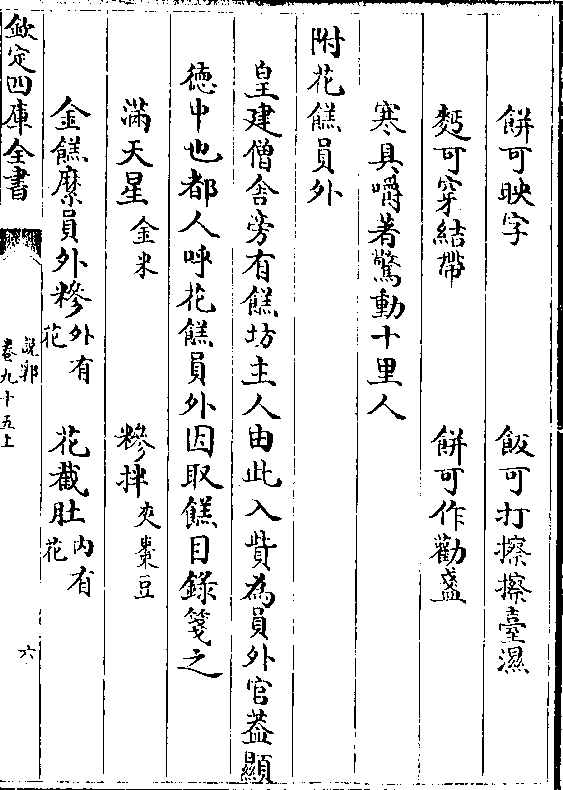 餅可映字　飯可打擦擦臺濕
麪可穿結帶　餅可作勸盞
寒具嚼著驚動十里人
附花餻員外
皇建僧舎旁有餻坊主人由此入貲為員外官葢顯
德中也都人呼花餻員外因取餻目錄箋之
滿天星金米　糝拌夾棗豆
金餻糜員外糝外有花　花截肚内有花
欽定四庫全書
說郛
卷九十五上
六